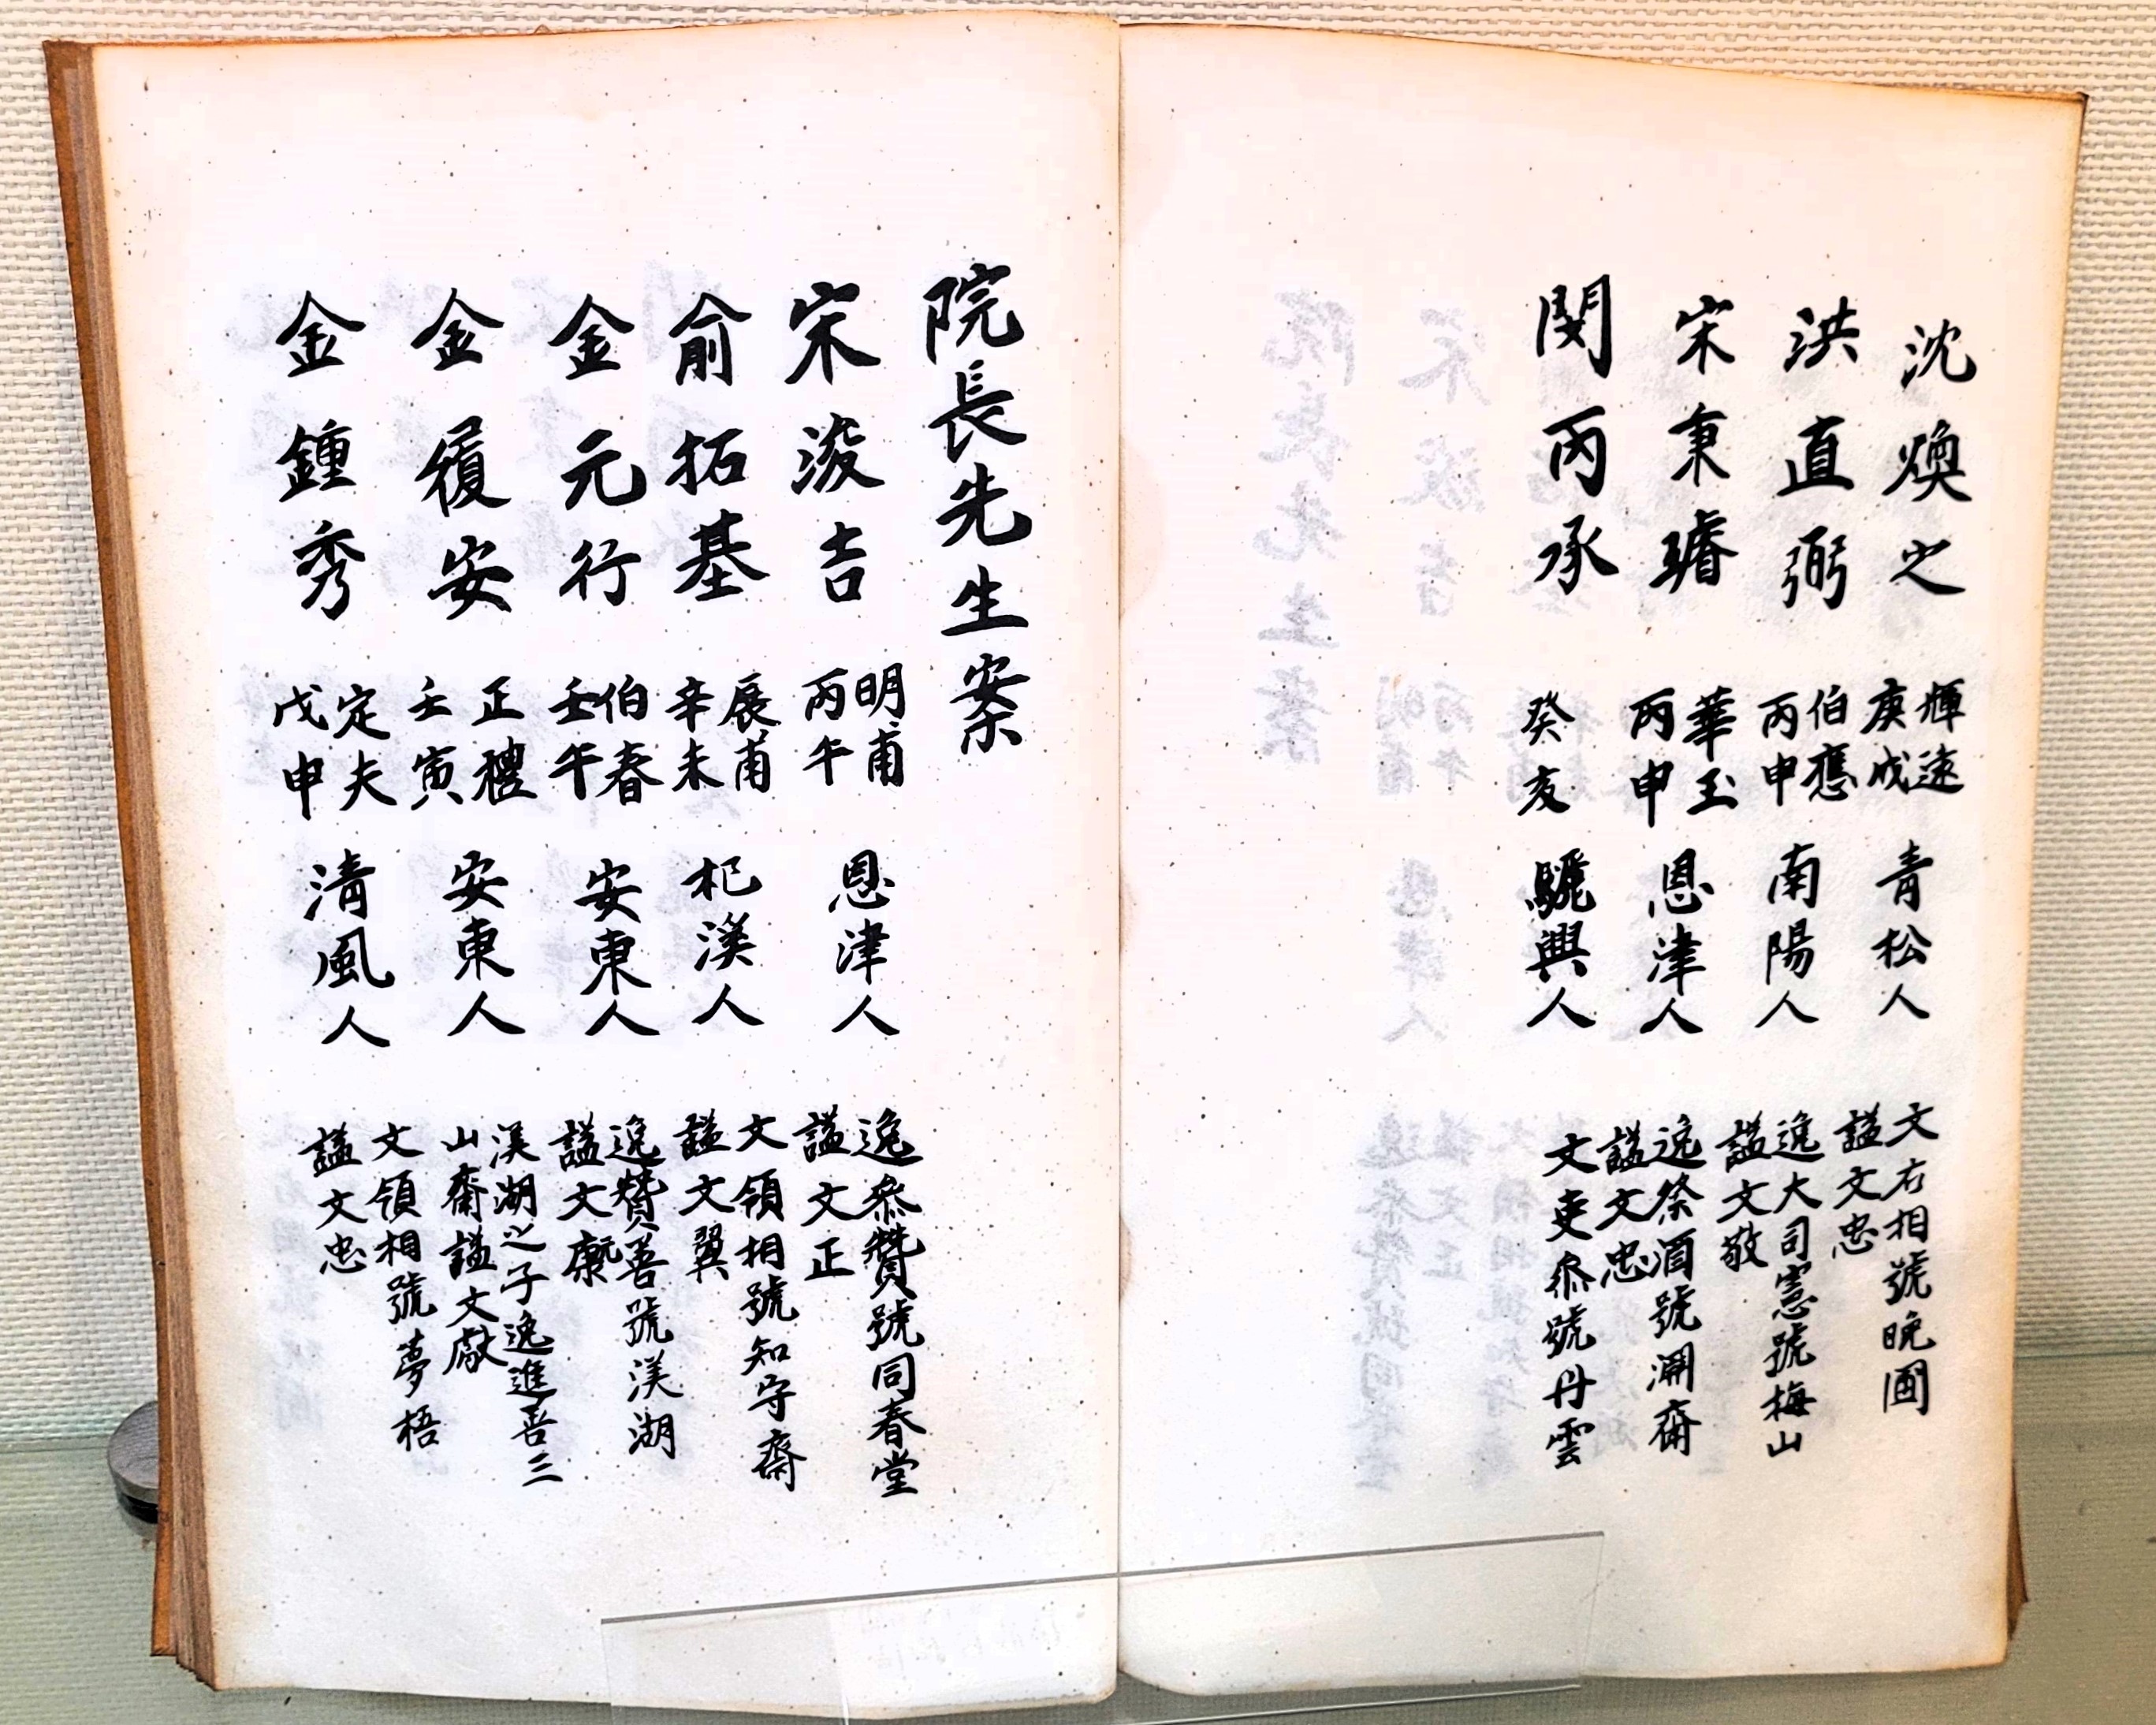 沈煥之 輝遠 庚戌 青松人 文右相號晚圃 謚文忠
洪直弼 伯應 丙申 南陽人 逸大司憲號梅山 謚文敬
宋秉璿 華玉 丙申 恩津人 逸祭酒號淵齋 謚文忠
閔丙承 癸亥 驪興人 文吏參號丹雲
院長先生案
宋浚吉 明甫 丙午 恩津人 逸參贊號同春堂 謚文正
俞拓基 展甫 辛未 杞溪人 文領相號知守齋 謚文翼
金元行 伯春 壬午 安東人 逸贊善號渼湖 謚文康
金履安 正禮 壬寅 安東人 渼湖之子逸進善三 山齋謚文獻
金鍾秀 定夫 戊申 清風人 文領相號夢梧 謚文忠